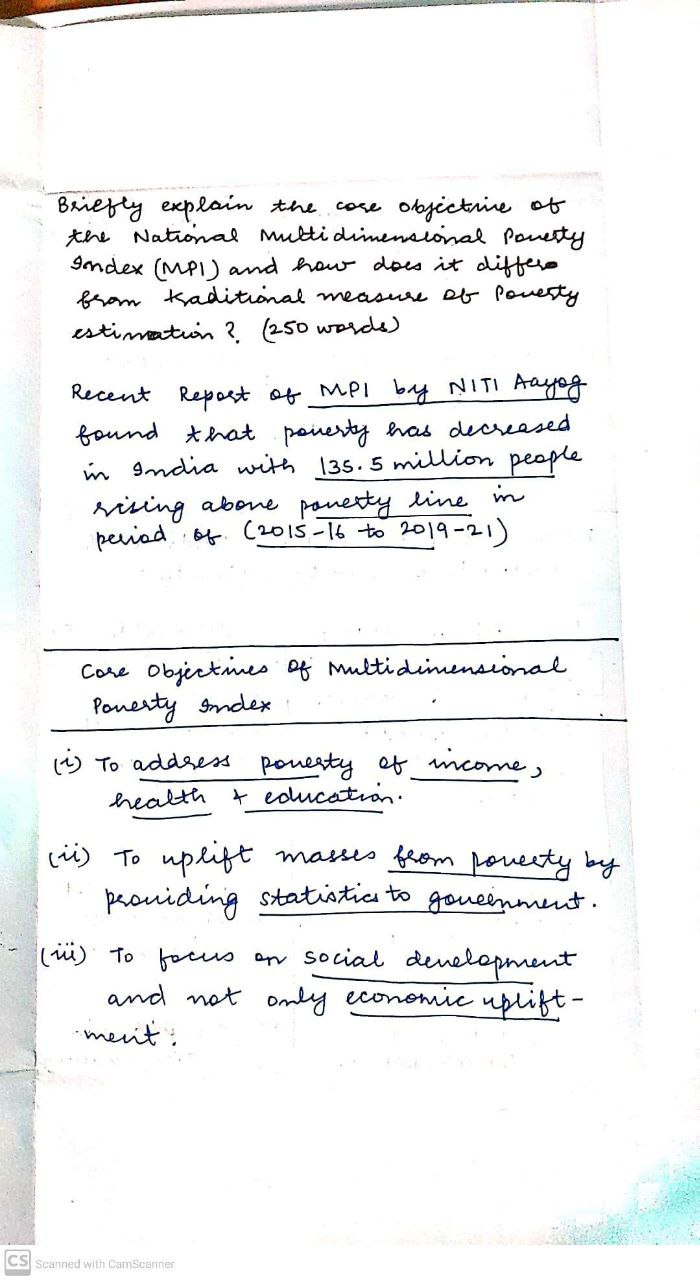 Briefly explain the core objective of
the National Multidimensional Poverty
Index (MPI) and how does it differs
from traditional measure of Poverty
estimation? (250 words)
Recent Report of MPI by NITI Aayog
found that poverty has decreased
in India with 135.5 million people
rising above poverty line in
period of (2015-16 to 2019-21)
Core Objectives of Multidimensional
Poverty Index
(i) To address poverty of income,
health + education.
(ii) To uplift masses from poverty by
providing statistics to government.
(iii) To focus on social development
and not only economic uplift-
ment.
CS Scanned with CamScanner